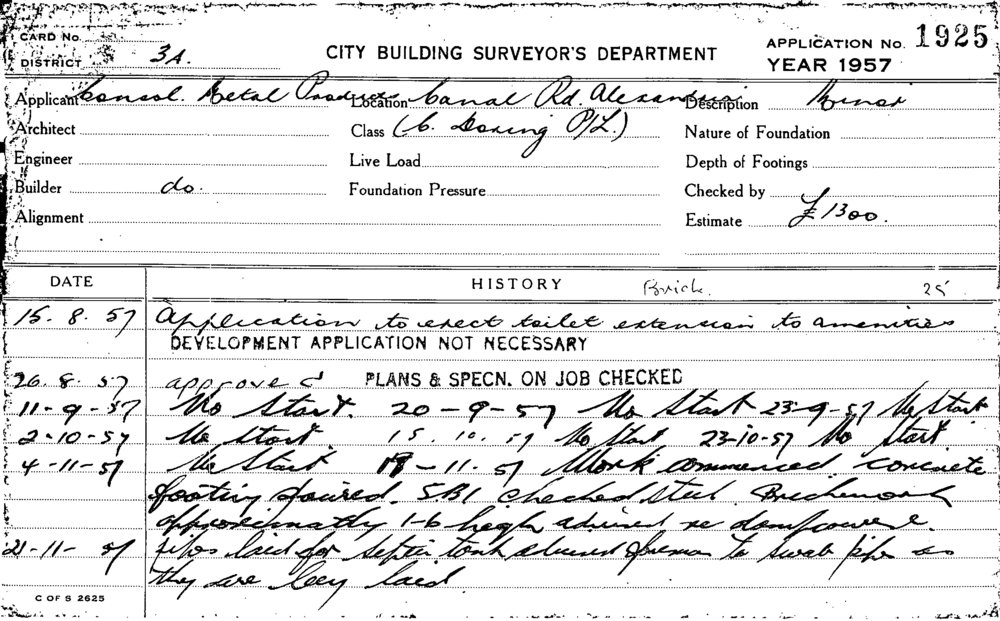 CARD No.
DISTRICT 3A.
CITY BUILDING SURVEYOR'S DEPARTMENT
APPLICATION No. 1925
YEAR 1957
Applicant Consol. Metal Products Location Canal Rd. Alexandria Description Minor
Architect Class (C. Doring P/L.) Nature of Foundation
Engineer Live Load Depth of Footings
Builder do. Foundation Pressure Checked by
Alignment Estimate £1300.
DATE HISTORY Brick. 25
15. 8. 57 Application to erect toilet extension to amenities
DEVELOPMENT APPLICATION NOT NECESSARY
26. 8. 57 approved PLANS & SPECN. ON JOB CHECKED
11-9-57 No Start. 20-9-57 No Start 23-9-57 No Start
2-10-57 No Start. 15. 10. 57 No Start 23-10-57 No Start
4-11-57 No Start 19-11-57 Work commenced. concrete
footing poured. SB1 checked steel Brickwork
approximatly 1-6 high advised re dampcourse.
21-11-57 pipes laid for septic tank advised foreman to swab pipe as
they are being laid
C OF S 2625